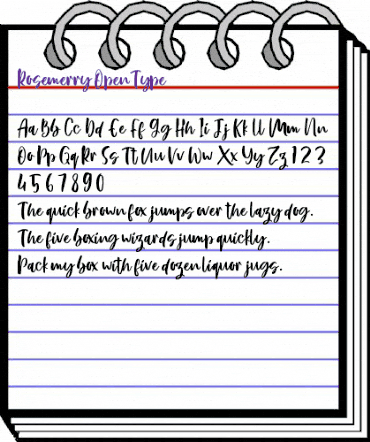 Rosemerry Open Type
Aa Bb Cc Dd Ee Ff Gg Hh Ii Jj Kk Ll Mm Nn
Oo Pp Qq Rr Ss Tt Uu Vv Ww Xx Yy Zz 1 2 3
4 5 6 7 8 9 0
The quick brown fox jumps over the lazy dog.
The five boxing wizards jump quickly.
Pack my box with five dozen liquor jugs.